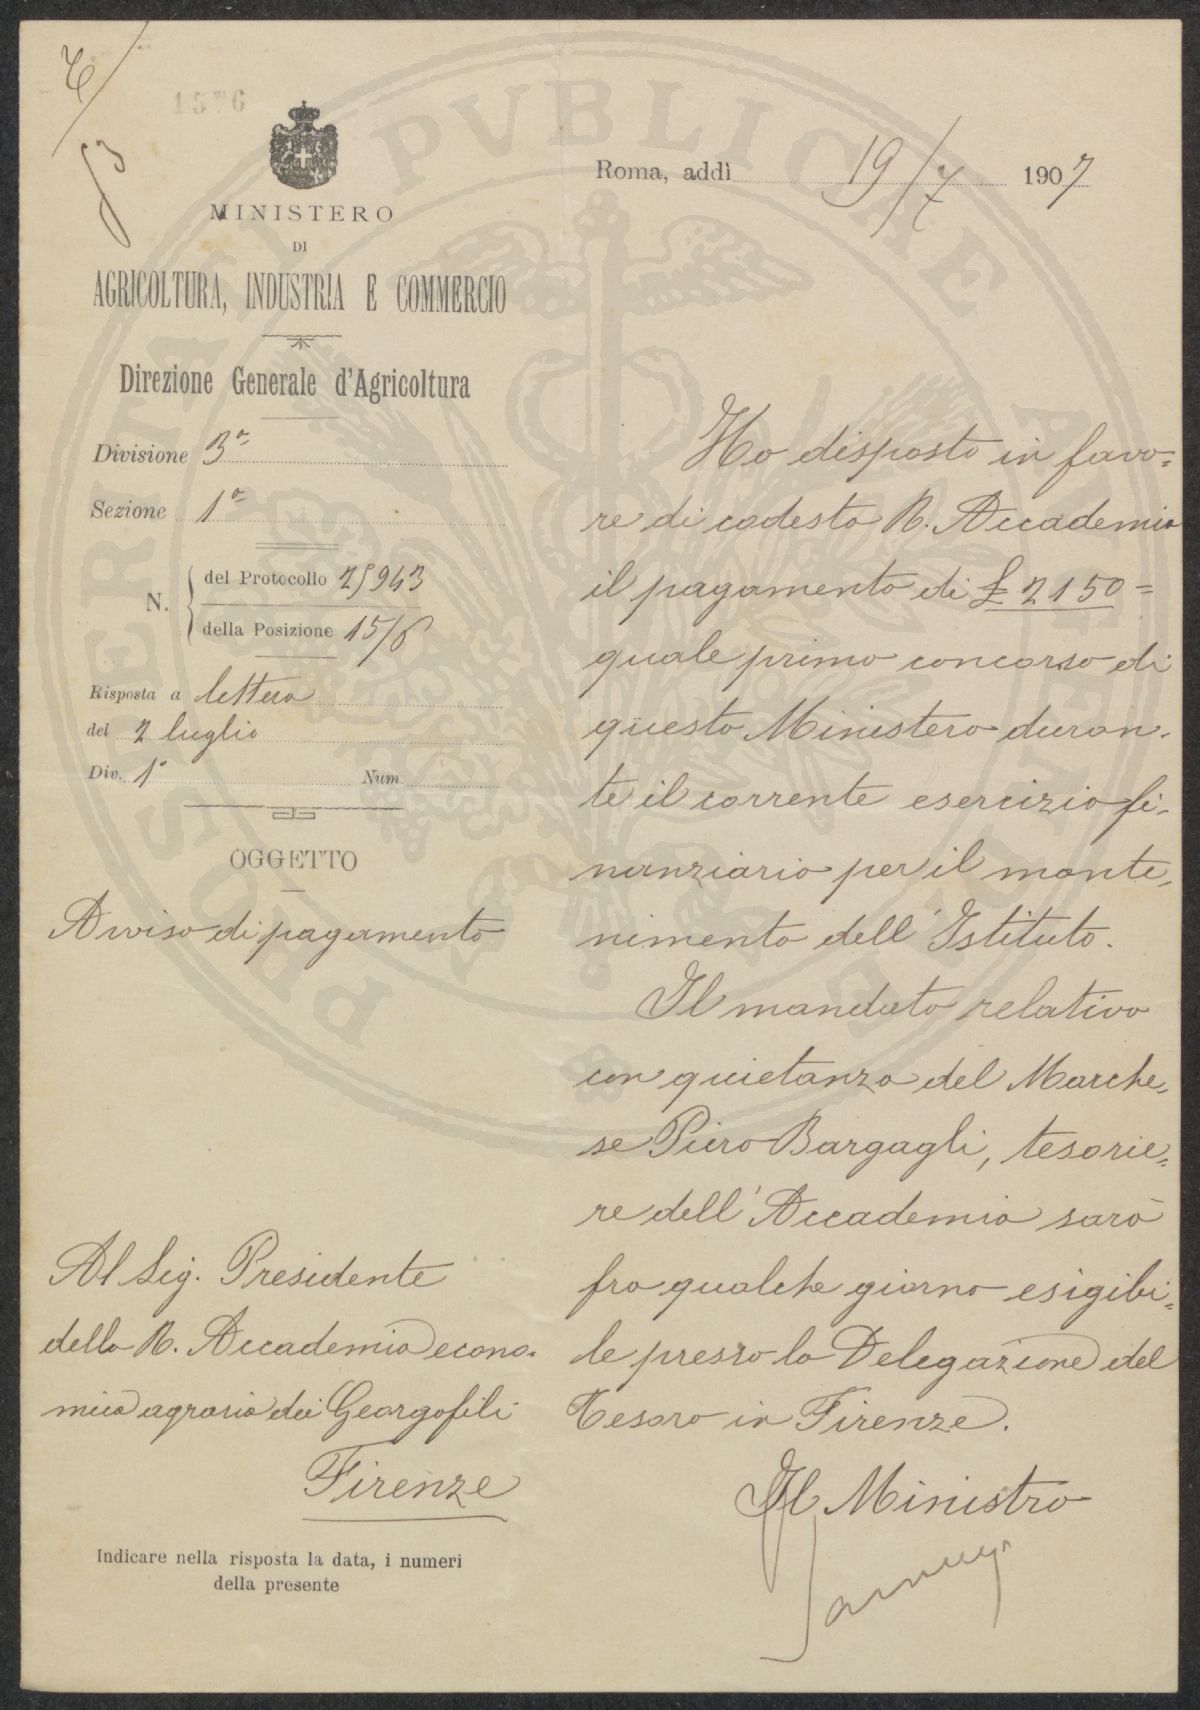 MINISTERO
DI
AGRICOLTURA, INDUSTRIA E COMMERCIO
Direzione Generale d'Agricoltura
Divisione 3a
Sezione 1a
N. del Protocollo 25943
della Posizione 15/6
Risposta a lettera
del 2 luglio
Div. 1a Num.
OGGETTO
Avviso di pagamento
Al Sig. Presidente
della R. Accademia econo=
mica agraria dei Georgofili
Firenze
Indicare nella risposta la data, i numeri
della presente
Roma, addì 19/7 1907
Ho disposto in favo=
re di codesta R. Accademia
il pagamento di £ 2150=
quale primo concorso di
questo Ministero duran-
te il corrente esercizio fi-
nanziario per il mante-
nimento dell'Istituto.
Il mandato relativo
con quietanza del Marche-
se Piero Bargagli, tesorie=
re dell'Accademia sarà
fra qualche giorno esigibi=
le presso la Delegazione del
Tesoro in Firenze.
Il Ministro
PROSPERITATI PVBLICAE AVGENDAE